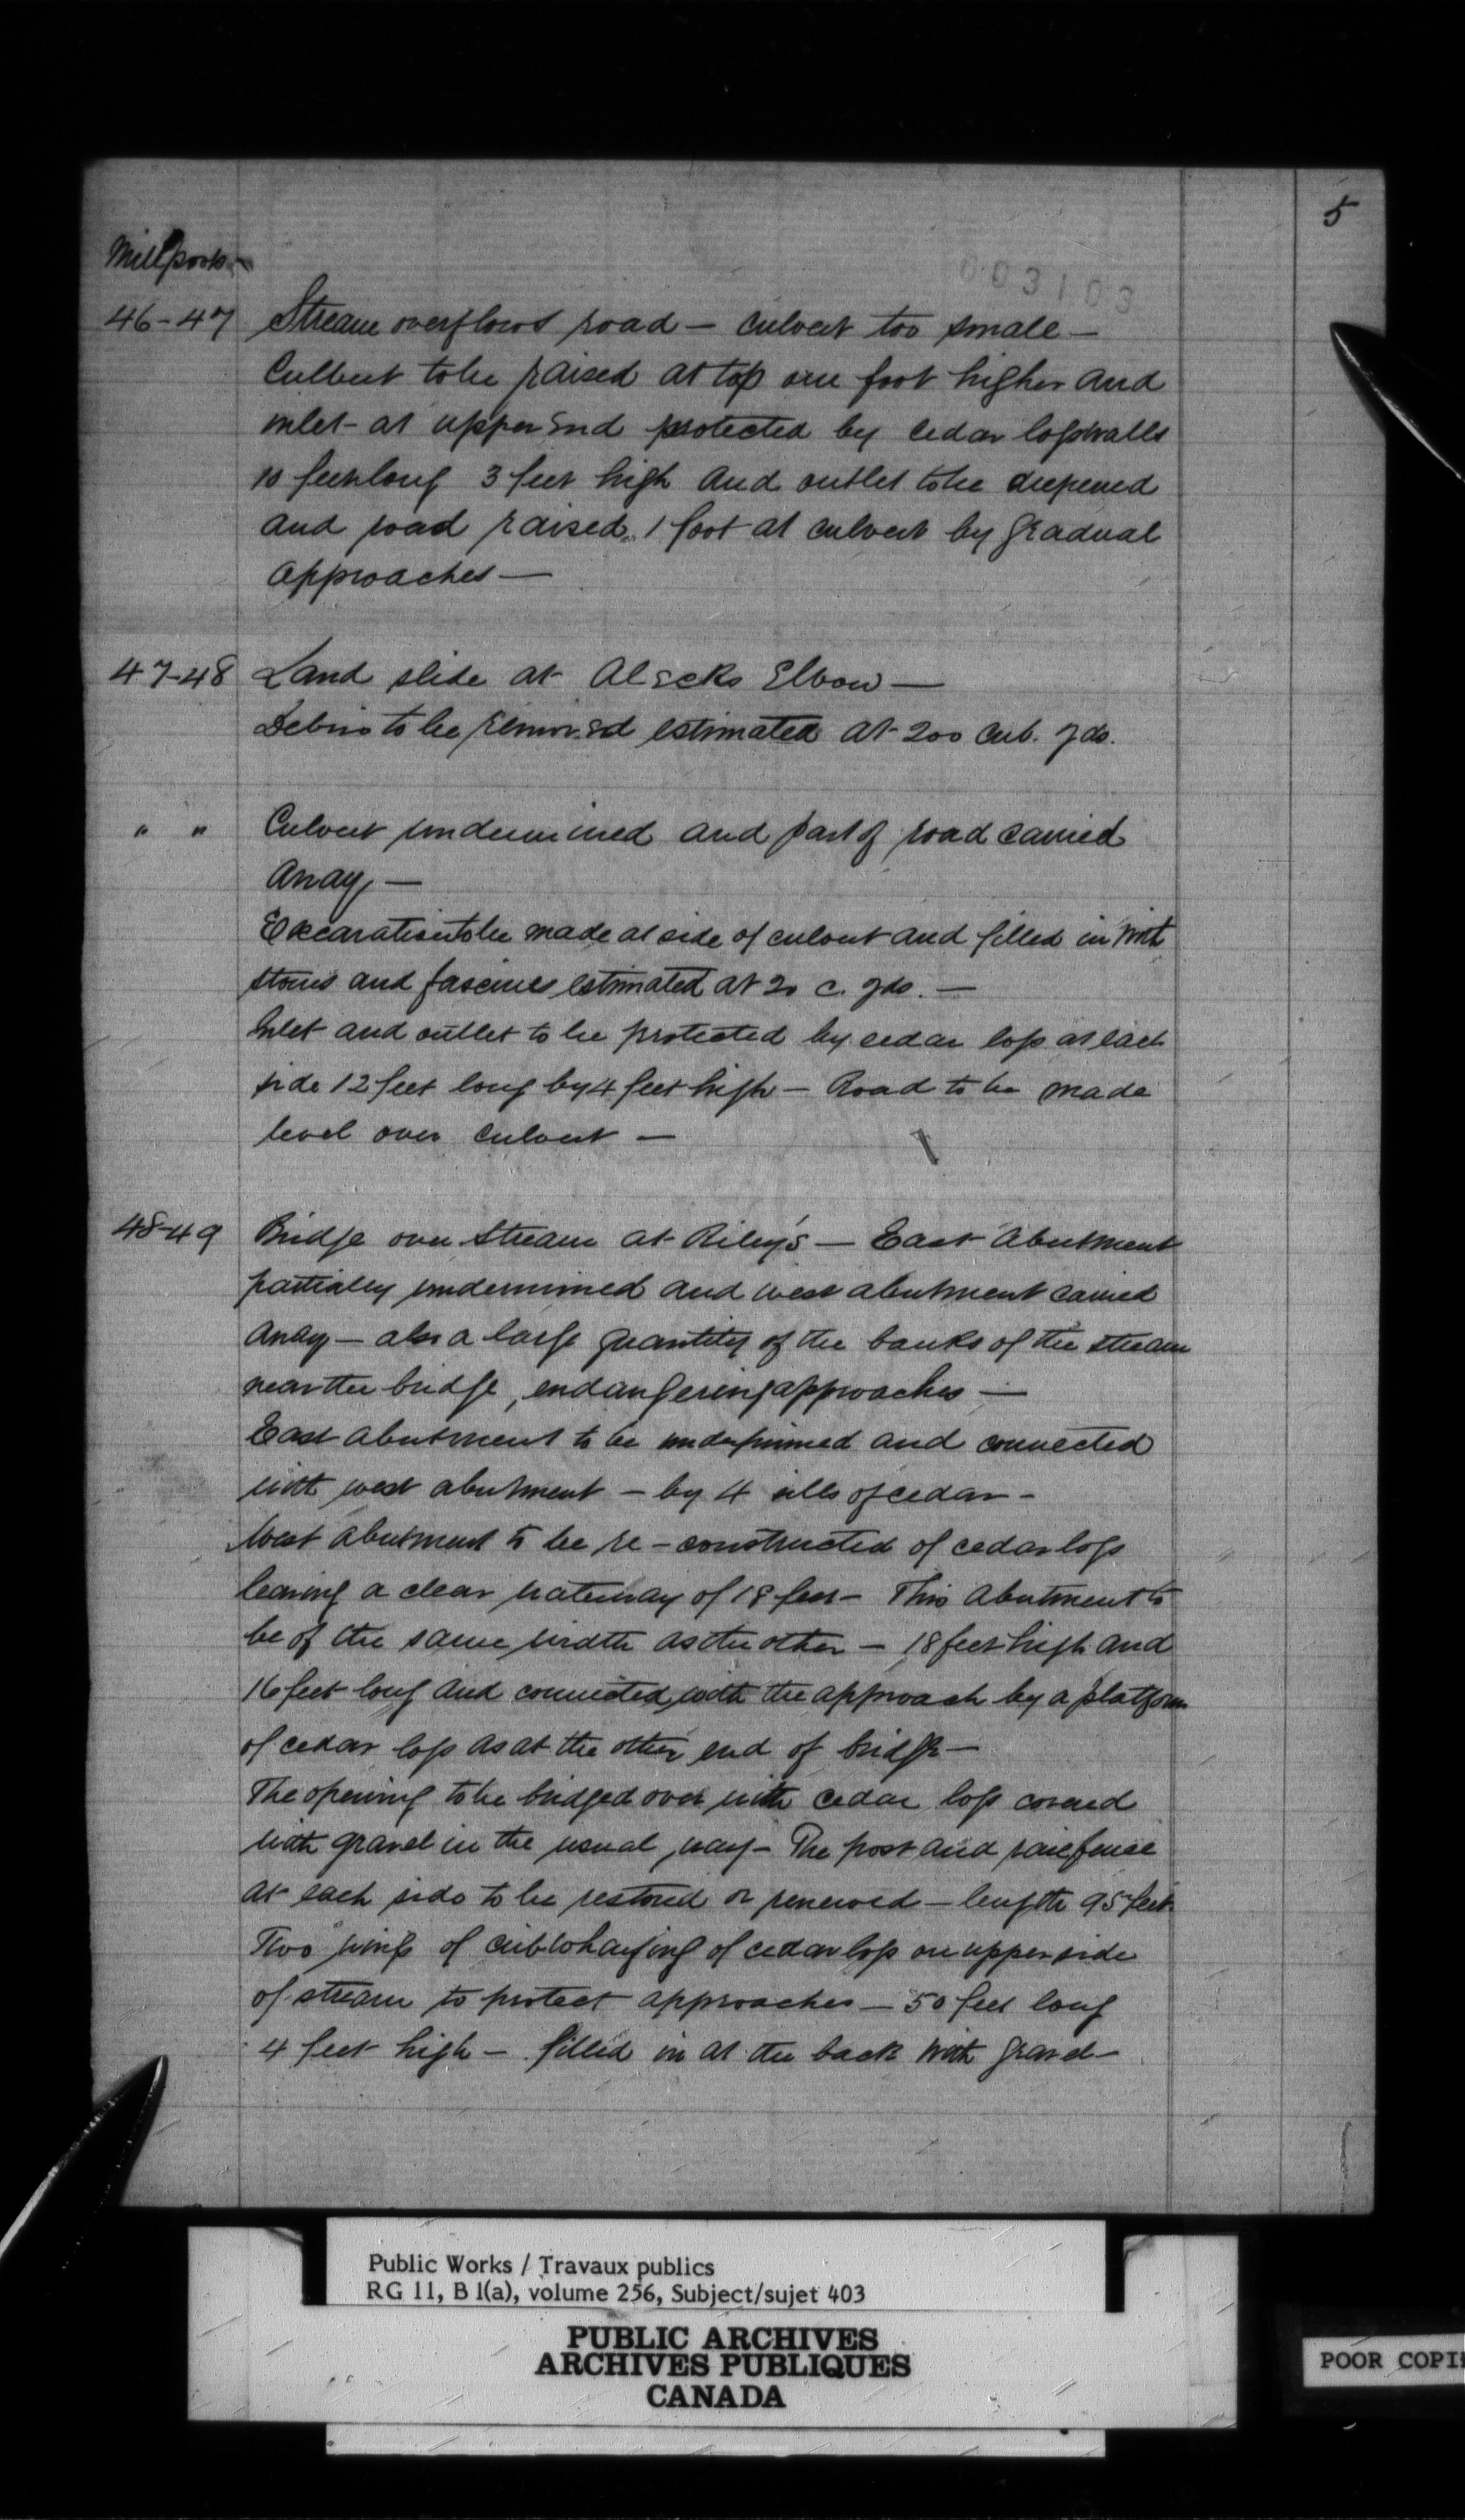 5
Mill posts
003103
46-47 Stream overflows road — culvert too small —
Culvert to be raised at top one foot higher and
inlet at upper end protected by cedar log walls
10 feet long 3 feet high and outlet to be deepened
and road raised 1 foot at culvert by gradual
approaches —
47-48 Land slide at Elbow —
Debris to be removed estimated at 200 cub. yds.
" " Culvert undermined and part of road carried
away —
Excavation to be made at side of culvert and filled in with
stones and fascines estimated at 20 c. yds. —
Inlet and outlet to be protected by cedar logs at each
side 12 feet long by 4 feet high — Road to be made
level over culvert —
48-49 Bridge over Stream at Riley's — East Abutment
partially undermined and west abutment carried
away — also a large quantity of the banks of the stream
near the bridge, endangering approaches —
East abutment to be underpinned and connected
with west abutment — by 4 sills of cedar —
West abutment to be re-constructed of cedar logs
leaving a clear waterway of 18 feet — This Abutment to
be of the same width as the other — 18 feet high and
16 feet long and connected with the approach by a platform
of cedar logs as at the other end of bridge —
The opening to be bridged over with cedar logs covered
with gravel in the usual way — The post and rail fence
at each side to be restored or renewed — length 95 feet
Two wings of cribwharfing of cedar logs on upper side
of stream to protect approaches — 50 feet long
4 feet high — filled in at the back with gravel —
Public Works / Travaux publics
RG 11, B 1(a), volume 256, Subject/sujet 403
PUBLIC ARCHIVES
ARCHIVES PUBLIQUES
CANADA
POOR COPI